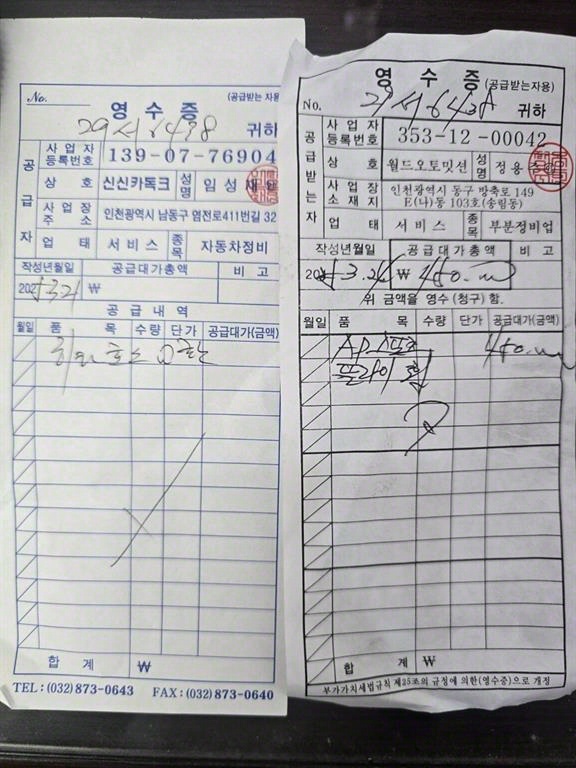 No.
(공급받는자용)
영수증
29서6438 귀하
공급자
사업자등록번호 139-07-76904
상호 신신카독크 성명 임성재
사업장주소 인천광역시 남동구 염전로411번길 32
업태 서비스 종목 자동차정비
작성년월일 공급대가총액 비고
202 ₩
공급내역
월일 품목 수량 단가 공급대가(금액)
합계 ₩
TEL : (032) 873-0643 FAX : (032) 873-0640
영수증 (공급받는자용)
No. 29서6438 귀하
공급받는자
사업자등록번호 353-12-00042
상호 월드오토밋션 성명 정용
사업장소재지 인천광역시 동구 방축로 149
E(나)동 103호(송림동)
업태 서비스 종목 부분정비업
작성년월일 공급대가총액 비고
3.26 ₩ 450.
위 금액을 영수(청구)함.
월일 품목 수량 단가 공급대가(금액)
450.
합계 ₩
부가가치세법규칙 제25조의 규정에 의한(영수증)으로 개정